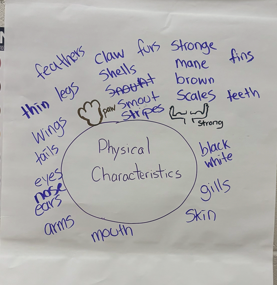 feathers
claw
furs
stronge
fins
shells
mane
snount
brown
thin legs
paw
smout
scales
teeth
stripes
strong
wings
tails
Physical
Characteristics
black
white
eyes
nose
ears
gills
arms
mouth
skin